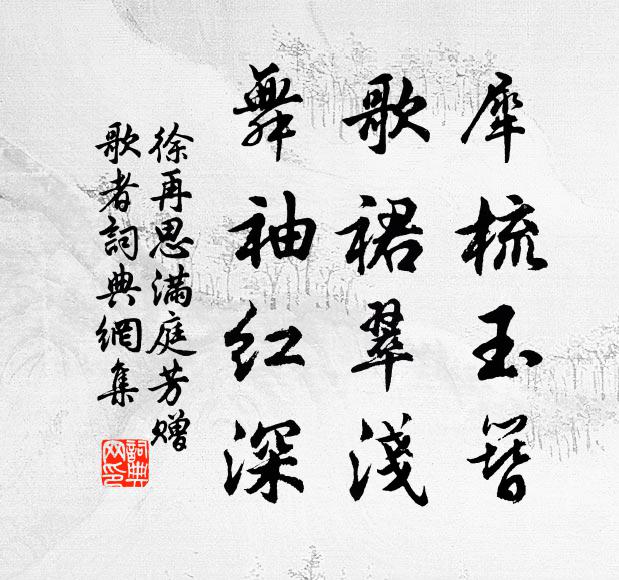 犀梳玉簪
歌裙翠淺
舞袖红深
徐再思满庭芳赠
歌者詞典網集
詞典网印